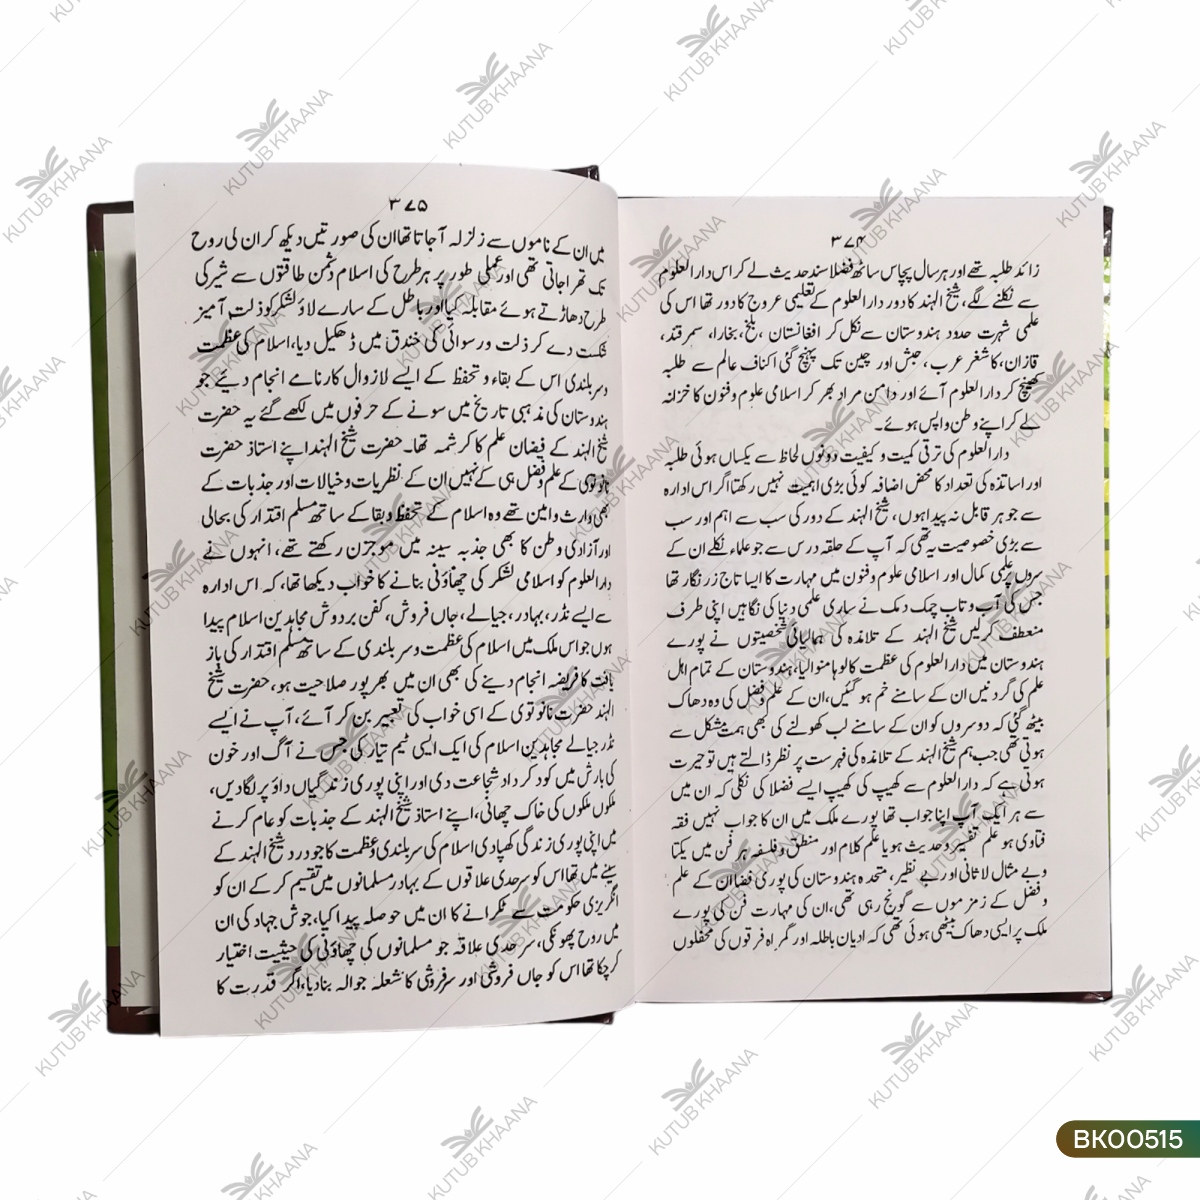 ۳۷۴
زائد طلبہ تھے اور ہر سال پچاس ساٹھ فضلا سند حدیث لے کر اس دارالعلوم
سے نکلنے لگے، شیخ الہند کا دور دارالعلوم کے تعلیمی عروج کا دور تھا اس کی
علمی شہرت حدود ہندوستان سے نکل کر افغانستان ، بلخ، بخارا، سمرقند،
قازان، کاشغر عرب ، حبش اور چین تک پہنچ گئی اکناف عالم سے طلبہ
کھینچ کر دارالعلوم آئے اور دامن مراد بھر کر اسلامی علوم وفنون کا خزانہ
لے کر اپنے وطن واپس ہوئے۔
دارالعلوم کی ترقی کمیت و کیفیت دونوں لحاظ سے یکساں ہوئی طلبہ
اور اساتذہ کی تعداد کا محض اضافہ کوئی بڑی اہمیت نہیں رکھتا اگر اس ادارہ
سے جوہر قابل نہ پیدا ہوں، شیخ الہند کے دور کی سب سے اہم اور سب
سے بڑی خصوصیت یہ تھی کہ آپ کے حلقہ درس سے جو علماء نکلے ان کے
سروں پر علمی کمال اور اسلامی علوم وفنون میں مہارت کا ایسا تاج زرنگار تھا
جس کی آب و تاب چمک دمک نے ساری علمی دنیا کی نگاہیں اپنی طرف
منعطف کر لیں شیخ الہند کے تلامذہ کی ہمالیائی شخصیتوں نے پورے
ہندوستان میں دارالعلوم کی عظمت کا لوہا منوالیا، ہندوستان کے تمام اہل
علم کی گردنیں ان کے سامنے خم ہو گئیں، ان کے علم وفضل کی وہ دھاک
بیٹھ گئی کہ دوسروں کو ان کے سامنے لب کھولنے کی بھی ہمت مشکل سے
ہوتی تھی جب ہم شیخ الہند کے تلامذہ کی فہرست پر نظر ڈالتے ہیں تو حیرت
ہوتی ہے کہ دارالعلوم سے کھیپ کی کھیپ ایسے فضلا کی نکلی کہ ان میں
سے ہر ایک آپ اپنا جواب تھا پورے ملک میں ان کا جواب نہیں فقہ
فتاوی ہو علم تفسیر وحدیث ہو یا علم کلام اور منطق وفلسفہ ہر فن میں یکتا
و بے مثال لا ثانی اور بے نظیر، متحدہ ہندوستان کی پوری فضا ان کے علم
وفضل کے زمزموں سے گونج رہی تھی، ان کی مہارت فن کی پورے
ملک پر ایسی دھاک بیٹھی ہوئی تھی کہ ادیان باطلہ اور گمراہ فرقوں کی محفلوں
۳۷۵
میں ان کے ناموں سے زلزلہ آ جاتا تھا ان کی صورتیں دیکھ کر ان کی روح
تک تھرا جاتی تھی اور عملی طور پر ہر طرح کی اسلام دشمن طاقتوں سے شیر کی
طرح دھاڑتے ہوئے مقابلہ کیا اور باطل کے سارے لاؤ لشکر کو ذلت آمیز
شکست دے کر ذلت ورسوائی کی خندق میں ڈھکیل دیا، اسلام کی عظمت
وسربلندی اس کے بقاء وتحفظ کے ایسے لازوال کارنامے انجام دیئے جو
ہندوستان کی مذہبی تاریخ میں سونے کے حرفوں میں لکھے گئے یہ حضرت
شیخ الہند کے فیضان علم کا کرشمہ تھا۔ حضرت شیخ الہند اپنے استاذ حضرت
نانوتوی کے علم وفضل ہی کے نہیں ان کے نظریات وخیالات اور جذبات کے
بھی وارث وامین تھے وہ اسلام کے تحفظ وبقا کے ساتھ مسلم اقتدار کی بحالی
اور آزادی وطن کا بھی جذبہ سینہ میں موجزن رکھتے تھے، انہوں نے
دارالعلوم کو اسلامی لشکر کی چھاؤنی بنانے کا خواب دیکھا تھا، کہ اس ادارہ
سے ایسے نڈر، بہادر، جیالے، جاں فروش، کفن بردوش مجاہدین اسلام پیدا
ہوں جو اس ملک میں اسلام کی عظمت وسربلندی کے ساتھ مسلم اقتدار کی باز
یافت کا فریضہ انجام دینے کی بھی ان میں بھر پور صلاحیت ہو، حضرت شیخ
الہند حضرت نانوتوی کے اسی خواب کی تعبیر بن کر آئے، آپ نے ایسے
نڈر جیالے مجاہدین اسلام کی ایک ایسی ٹیم تیار کی جس نے آگ اور خون
کی بارش میں کود کر داد شجاعت دی اور اپنی پوری زندگیاں داؤ پر لگادیں،
ملکوں ملکوں کی خاک چھانی، اپنے استاذ شیخ الہند کے جذبات کو عام کرنے
میں اپنی پوری زندگی کھپادی اسلام کی سربلندی وعظمت کا جو درد شیخ الہند کے
سینے میں تھا اس کو سرحدی علاقوں کے بہادر مسلمانوں میں تقسیم کر کے ان کو
انگریزی حکومت سے ٹکرانے کا ان میں حوصلہ پیدا کیا، جوش جہاد کی ان
میں روح پھونکی، سرحدی علاقہ جو مسلمانوں کی چھاؤنی کی حیثیت اختیار
کر چکا تھا اس کو جاں فروشی اور سرفروشی کا شعلہ جوالہ بنادیا، اگر قدرت کا
KUTUB KHAANA
BK00515